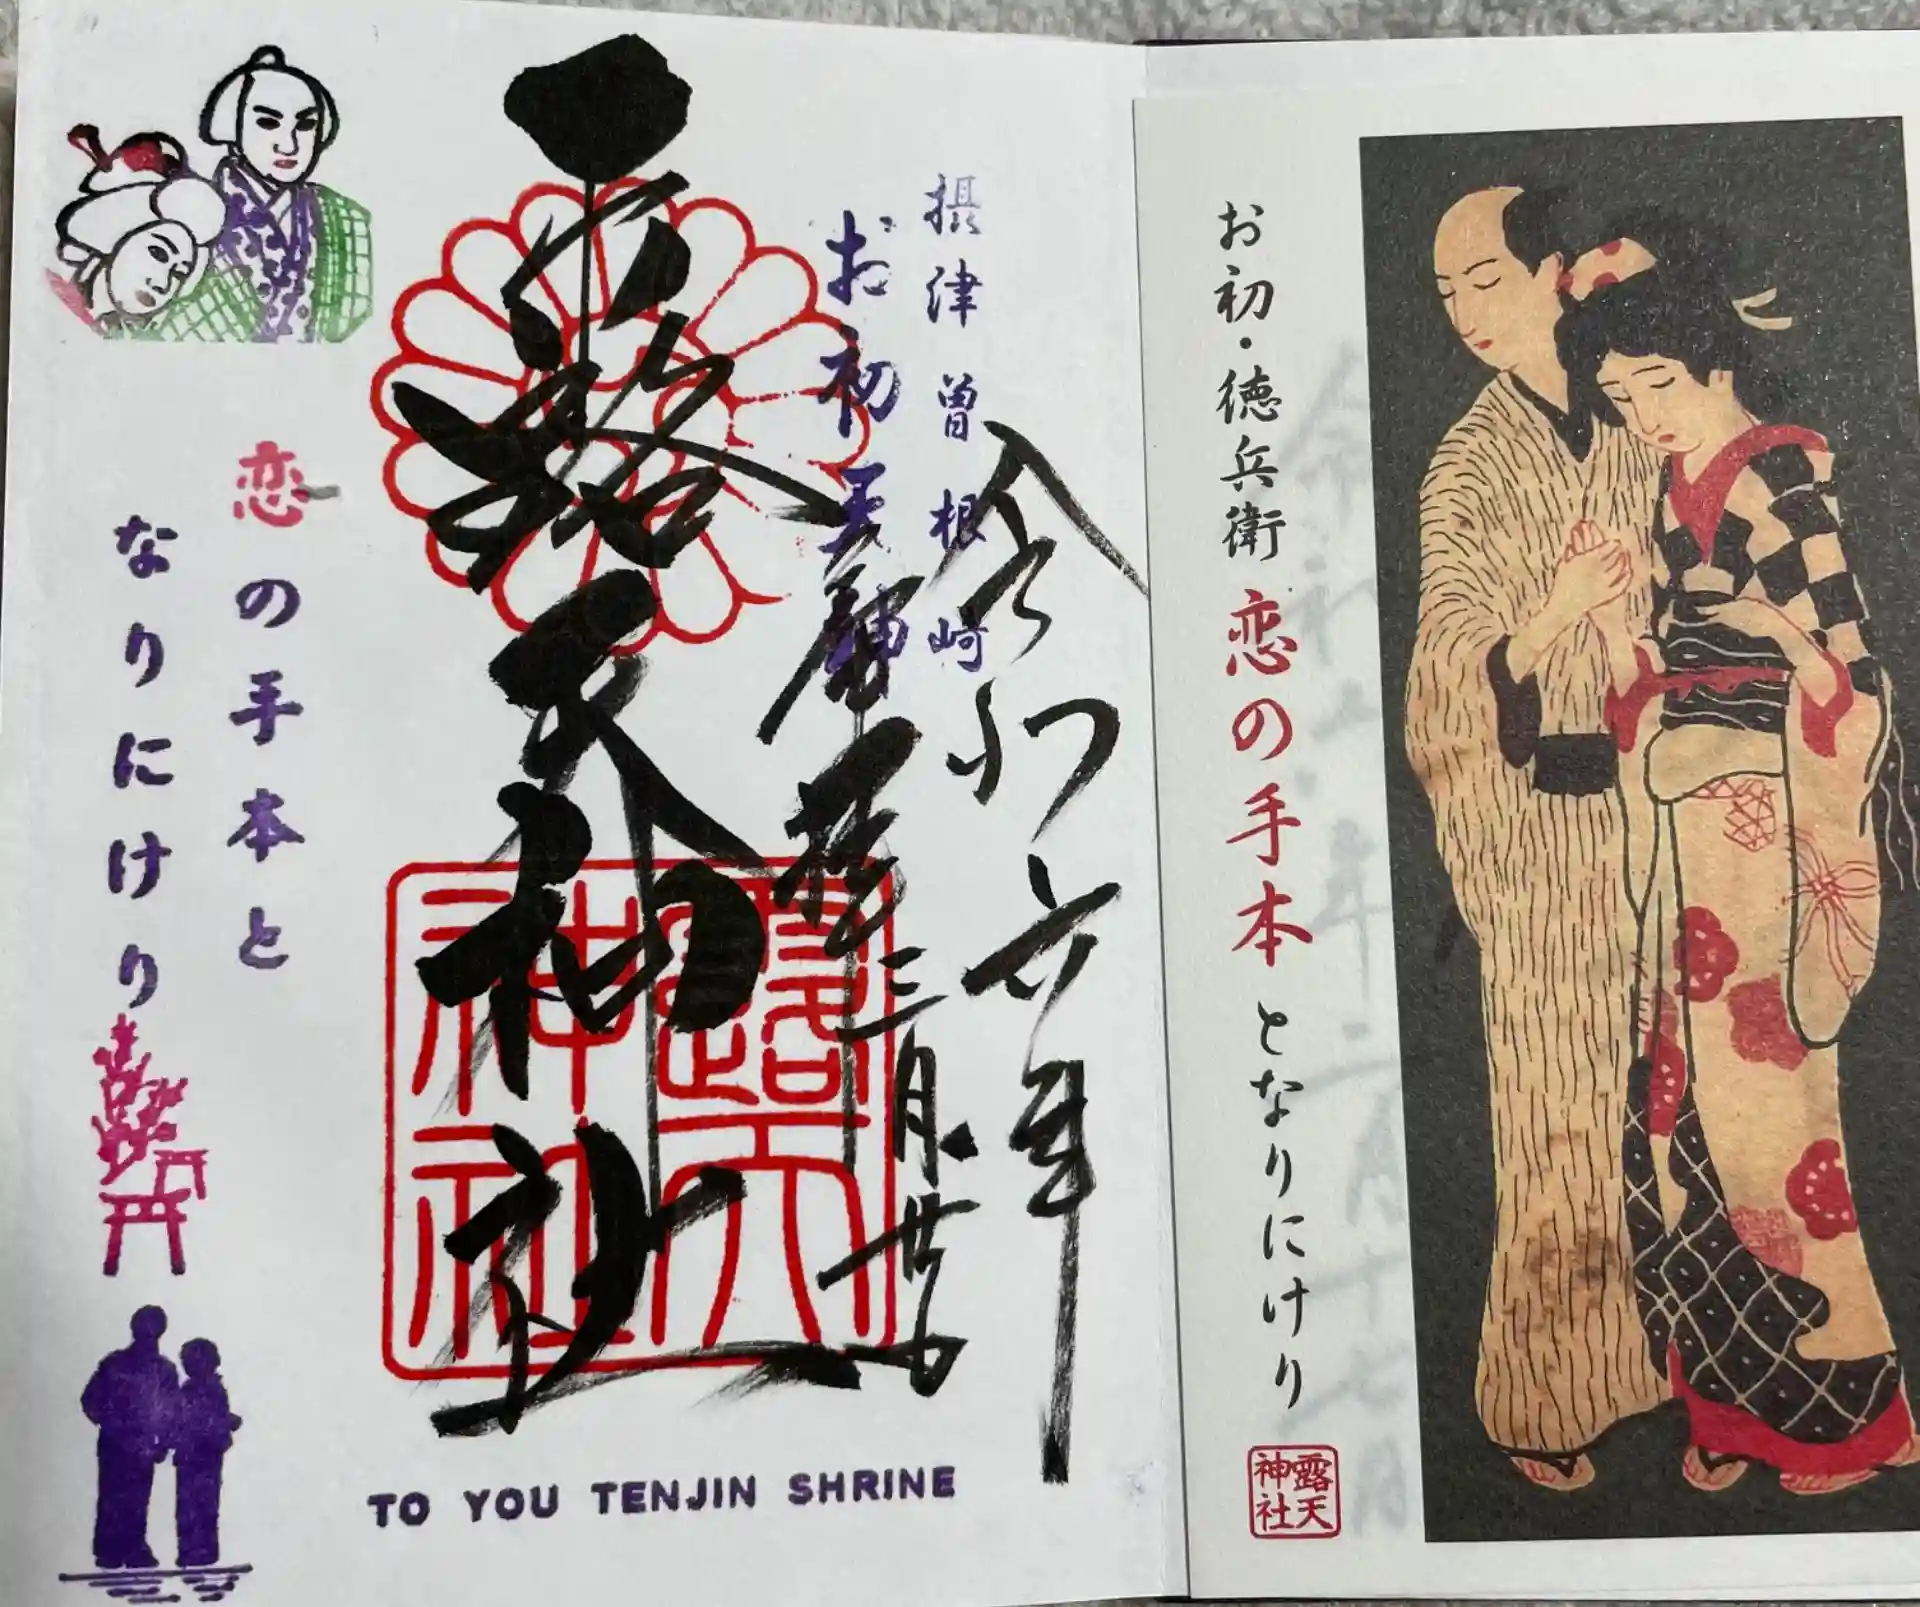 お初・徳兵衛 恋の手本 となりにけり
露天
神社
摂津 曽根崎
お初天神
令和六年
三月廿
露天神社
露天
神社
恋の手本と
なりにけり
TO YOU TENJIN SHRINE